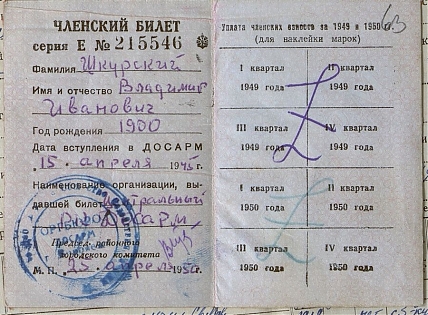 ЧЛЕНСКИЙ БИЛЕТ
серия Е № 215546
Фамилия Шкурский
Имя и отчество Владимир
Иванович
Год рождения 1900
Дата вступления в ДОСАРМ
"15" апреля 1945г.
Наименование организации, вы-
давшей билет Центральный
Председ. районного
городского комитета
М. П. "25" апреля 1950г.
ОРГБЮРО
Уплата членских взносов за 1949 и 1950 г.
(для наклейки марок)
I квартал
1949 года
II квартал
1949 года
III квартал
1949 года
IV квартал
1949 года
I квартал
1950 года
II квартал
1950 года
III квартал
1950 года
IV квартал
1950 года